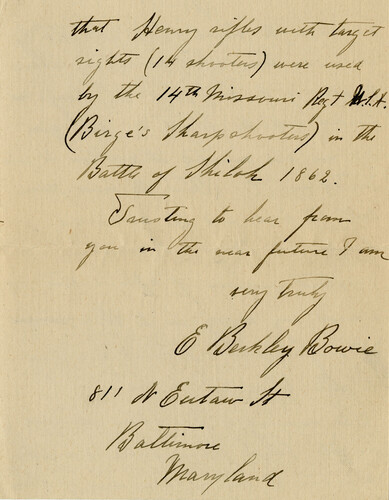 that Henry rifles with target
sights (14 shooters) were used
by the 14th Missouri Regt U.S.A.
(Birge's Sharpshooters) in the
Battle of Shiloh 1862.
Trusting to hear from
you in the near future I am
very truly
E Berkley Bowie
811 N Eutaw St
Baltimore
Maryland